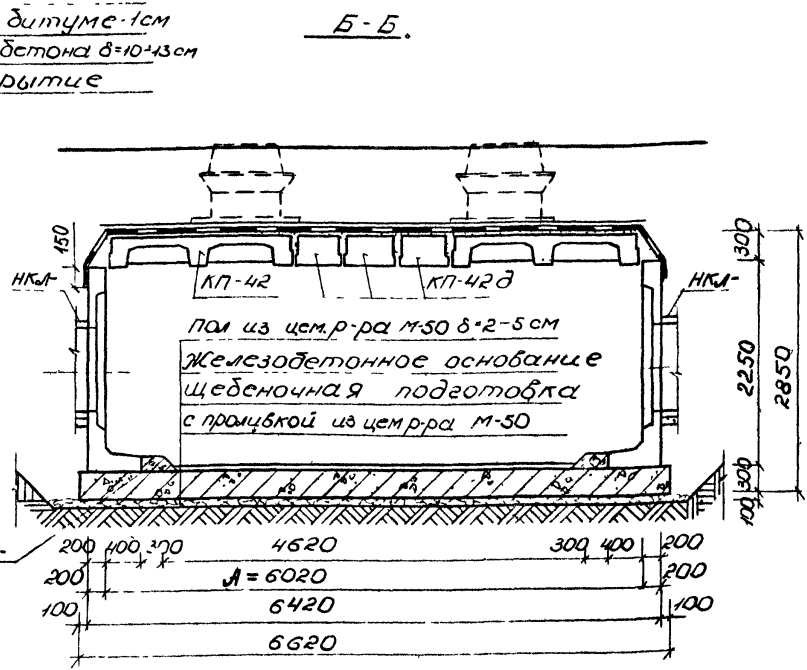 битуме-1см
бетона δ=10÷13см
рытие
Б-Б.
150
300
НКЛ-
КП-42
КП-42д
НКЛ-
пол из цем.р-ра М-50 δ=2-5см
Железобетонное основание
щебеночная подготовка
с проливкой из цем р-ра М-50
2250
2850
300
100
200 400 300 4620 300 400 200
200 А=6020 200
100 6420 100
6620